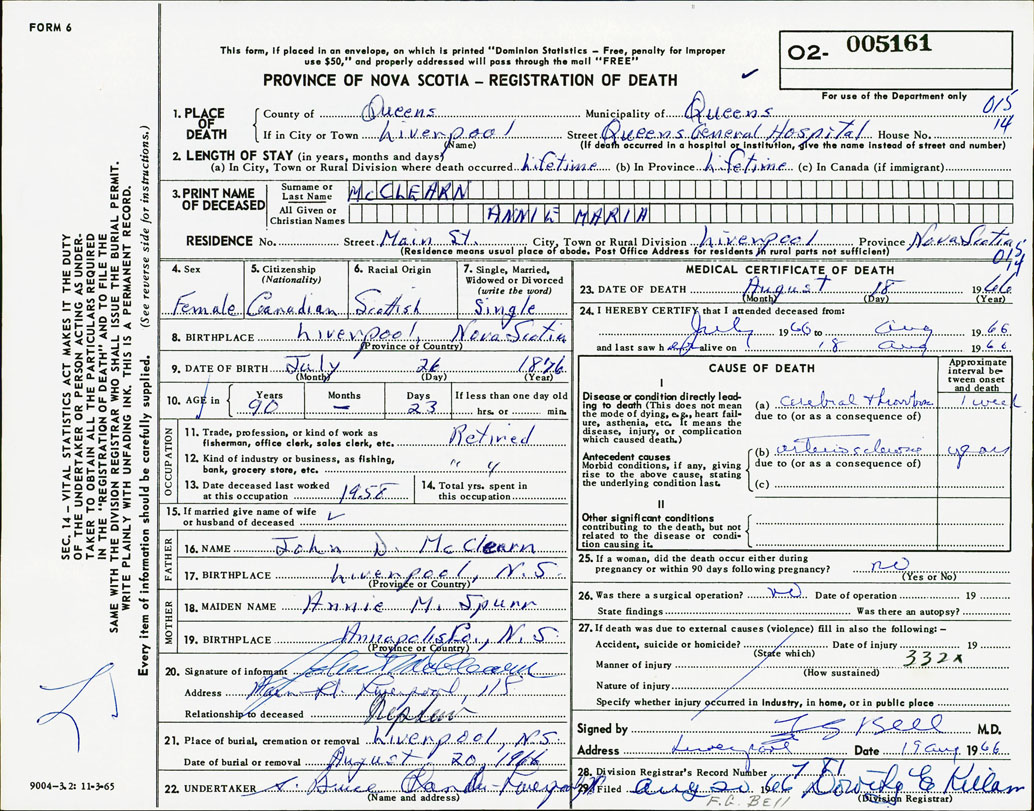 FORM 6
This form, if placed in an envelope, on which is printed "Dominion Statistics – Free, penalty for improper
use $50," and properly addressed will pass through the mail "FREE"
PROVINCE OF NOVA SCOTIA – REGISTRATION OF DEATH
O2- 005161
For use of the Department only
015
14
1. PLACE OF DEATH County of Queens Municipality of Queens
If in City or Town Liverpool (Name) Street Queens General Hospital House No.
(If death occurred in a hospital or institution, give the name instead of street and number)
2. LENGTH OF STAY (in years, months and days)
(a) In City, Town or Rural Division where death occurred Lifetime (b) In Province Lifetime (c) In Canada (if immigrant)
3. PRINT NAME OF DECEASED Surname or Last Name McCLEARN
All Given or Christian Names ANNIE MARIA
RESIDENCE No. Street Main St. City, Town or Rural Division Liverpool Province Nova Scotia
(Residence means usual place of abode. Post Office Address for residents in rural parts not sufficient)
015
14
4. Sex Female
5. Citizenship (Nationality) Canadian
6. Racial Origin Scottish
7. Single, Married, Widowed or Divorced (write the word) Single
8. BIRTHPLACE Liverpool, Nova Scotia
(Province or Country)
9. DATE OF BIRTH July 26 1876
(Month) (Day) (Year)
10. AGE in Years 90 Months – Days 23 If less than one day old hrs. or min.
OCCUPATION
11. Trade, profession, or kind of work as fisherman, office clerk, sales clerk, etc. Retired
12. Kind of industry or business, as fishing, bank, grocery store, etc. " "
13. Date deceased last worked at this occupation 1958
14. Total yrs. spent in this occupation
15. If married give name of wife or husband of deceased
FATHER
16. NAME John D. McClearn
17. BIRTHPLACE Liverpool, N.S.
(Province or Country)
MOTHER
18. MAIDEN NAME Annie M. Spurr
19. BIRTHPLACE Annapolis Co., N.S.
(Province or Country)
20. Signature of informant
Address Main St. Liverpool, NS
Relationship to deceased Nephew
21. Place of burial, cremation or removal Liverpool, N.S.
Date of burial or removal August 20, 1966
22. UNDERTAKER Bruce
(Name and address)
MEDICAL CERTIFICATE OF DEATH
23. DATE OF DEATH August 18 1966
(Month) (Day) (Year)
24. I HEREBY CERTIFY that I attended deceased from:
July 1966 to Aug 1966
and last saw h alive on 18 Aug 1966
CAUSE OF DEATH
Approximate interval between onset and death
I
Disease or condition directly leading to death (This does not mean the mode of dying, e.g., heart failure, asthenia, etc. It means the disease, injury, or complication which caused death.)
(a) Cerebral thrombosis 1 week
due to (or as a consequence of)
Antecedent causes
Morbid conditions, if any, giving rise to the above cause, stating the underlying condition last.
(b) arteriosclerosis years
due to (or as a consequence of)
(c)
II
Other significant conditions contributing to the death, but not related to the disease or condition causing it.
25. If a woman, did the death occur either during pregnancy or within 90 days following pregnancy? no
(Yes or No)
26. Was there a surgical operation? no Date of operation 19
State findings Was there an autopsy?
27. If death was due to external causes (violence) fill in also the following: –
Accident, suicide or homicide? Date of injury 19
(State which)
332x
Manner of injury
(How sustained)
Nature of injury
Specify whether injury occurred in Industry, in home, or in public place
Signed by F G Bell M.D.
Address Liverpool Date 19 Aug 1966
28. Division Registrar's Record Number
29. Filed Aug 20 1966 Dorothy E Killam
(Division Registrar)
F.G. BELL
SEC. 14 – VITAL STATISTICS ACT MAKES IT THE DUTY
OF THE UNDERTAKER OR PERSON ACTING AS UNDER-
TAKER TO OBTAIN ALL THE PARTICULARS REQUIRED
IN THE "REGISTRATION OF DEATH" AND TO FILE THE
SAME WITH THE DIVISION REGISTRAR WHO SHALL ISSUE THE BURIAL PERMIT.
WRITE PLAINLY WITH UNFADING INK. THIS IS A PERMANENT RECORD.
Every item of information should be carefully supplied. (See reverse side for instructions.)
9004-3.2: 11-3-65